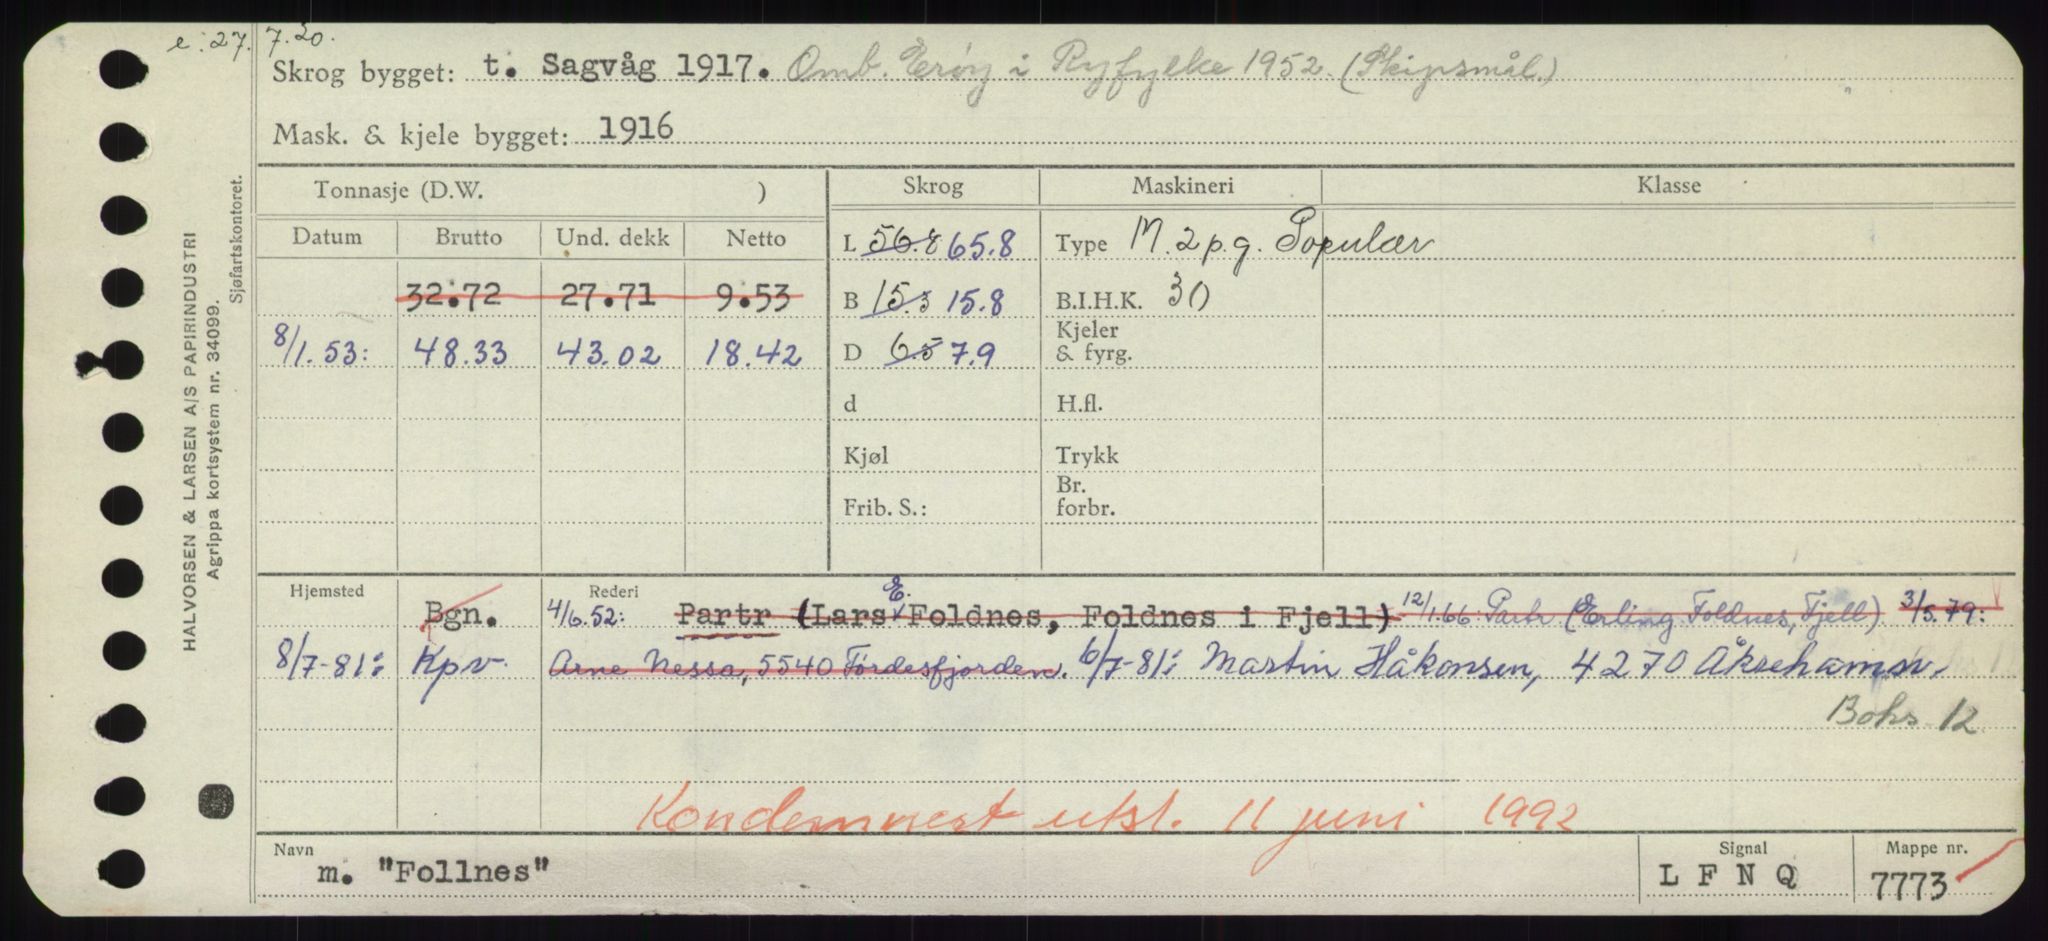 e. 27.7.20.
Skrog bygget: t. Sagvåg 1917. Omb. i Ryfylke 1952. (Skipsmål.)
Mask. & kjele bygget: 1916
Tonnasje (D.W. ) Skrog Maskineri Klasse
Datum Brutto Und. dekk Netto L 56.8 65.8 Type M. 2 p.g. Populær
32.72 27.71 9.53 B 15.3 15.8 B.I.H.K. 30
8/1.53: 48.33 43.02 18.42 D 6.5 7.9 Kjeler & fyrg.
d H.fl.
Kjøl Trykk
Frib. S.: Br. forbr.
Hjemsted Rederi
Bgn. 4/6.52: Partr (Lars E. Foldnes, Foldnes i Fjell) 12/1.66 Partr (Erling Foldnes, Fjell) 3/5.79:
8/7-81: Kpv. Arne Nessa, 5540 Førdesfjorden. 6/7-81: Martin Håkonsen, 4270 Åkrehamn.
Boks 12
Kondemnert utsl. 11 juni 1992
Navn Signal Mappe nr.
m. "Follnes" L F N Q 7773
HALVORSEN & LARSEN A/S PAPIRINDUSTRI
Agrippa kortsystem nr. 34099.
Sjøfartskontoret.